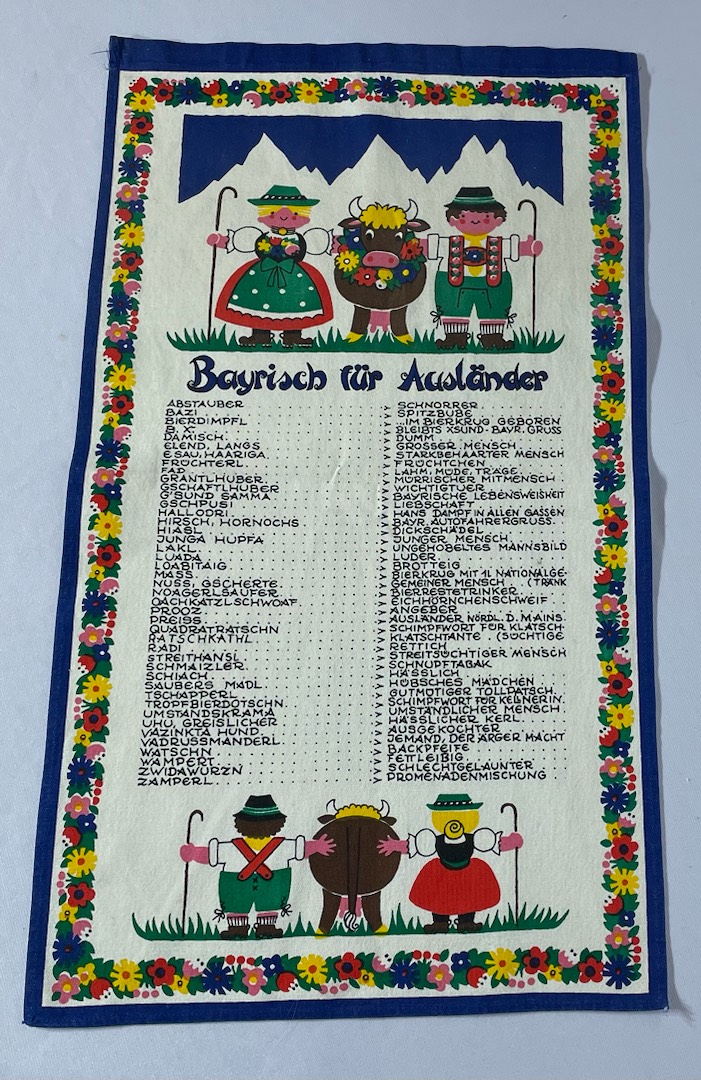 Bayrisch für Ausländer
ABSTAUBER SCHNORRER
BAZI SPITZBUBE
BIERDIMPFL ..IM BIERKRUG GEBOREN
B. X. BLEIBTS XSUND-BAYR. GRUSS
DAMISCH DUMM
ELEND, LANGS GROSSER MENSCH
ESAU, HAARIGA STARKBEHAARTER MENSCH
FRÜCHTERL FRÜCHTCHEN
FAD LAHM, MÜDE, TRÄGE
GRANTLHUBER MÜRRISCHER MITMENSCH
GSCHAFTLHUBER WICHTIGTUER
G'SUND SAMMA BAYRISCHE LEBENSWEISHEIT
GSCHPUSI LIEBSCHAFT
HALLODRI HANS DAMPF IN ALLEN GASSEN
HIRSCH, HORNOCHS BAYR. AUTOFAHRERGRUSS
HIASL DICKSCHÄDEL
JUNGA HUPFA JUNGER MENSCH
LAKL UNGEHOBELTES MANNSBILD
LUADA LUDER
LOABITAIG BROTTEIG
MASS BIERKRUG MIT 1L NATIONALGE-
NUSS, GSCHERTE GEMEINER MENSCH (TRÄNK
NOAGERLSAUFER BIERRESTETRINKER
OACHKATZLSCHWOAF EICHHÖRNCHENSCHWEIF
PROOZ ANGEBER
PREISS AUSLÄNDER NÖRDL. D. MAINS
QUADRATRATSCHN SCHIMPFWORT FÜR KLATSCH-
RATSCHKATHL KLATSCHTANTE (SÜCHTIGE
RADI RETTICH
STREITHANSL STREITSÜCHTIGER MENSCH
SCHMAIZLER SCHNUPFTABAK
SCHIACH HÄSSLICH
SAUBERS MADL HÜBSCHES MÄDCHEN
TSCHAPPERL GUTMÜTIGER TOLLPATSCH
TROPFBIERDOTSCHN SCHIMPFWORT FÜR KELLNERIN
UMSTANDSKRAMA UMSTÄNDLICHER MENSCH
UHU, GREISLICHER HÄSSLICHER KERL
VAZINKTA HUND AUSGEKOCHTER
VADRUSSMANDERL JEMAND, DER ÄRGER MACHT
WATSCHN BACKPFEIFE
WAMPERT FETTLEIBIG
ZWIDAWURZN SCHLECHTGELAUNTER
ZAMPERL PROMENADENMISCHUNG